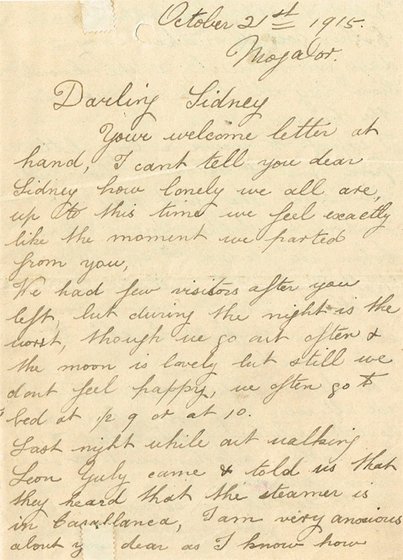 October 21st 1915.
Mogador.
Darling Sidney
Your welcome letter at
hand, I cant tell you dear
Sidney how lonely we all are,
up to this time we feel exactly
like the moment we parted
from you,
We had few visitors after you
left, but during the night is the
worst, though we go out often &
the moon is lovely but still we
dont feel happy, we often go to
bed at ½ 9 or at 10.
Last night while out walking
Leon Yuly came & told us that
they heard that the steamer is
in Casablanca, I am very anxious
about dear as I know how